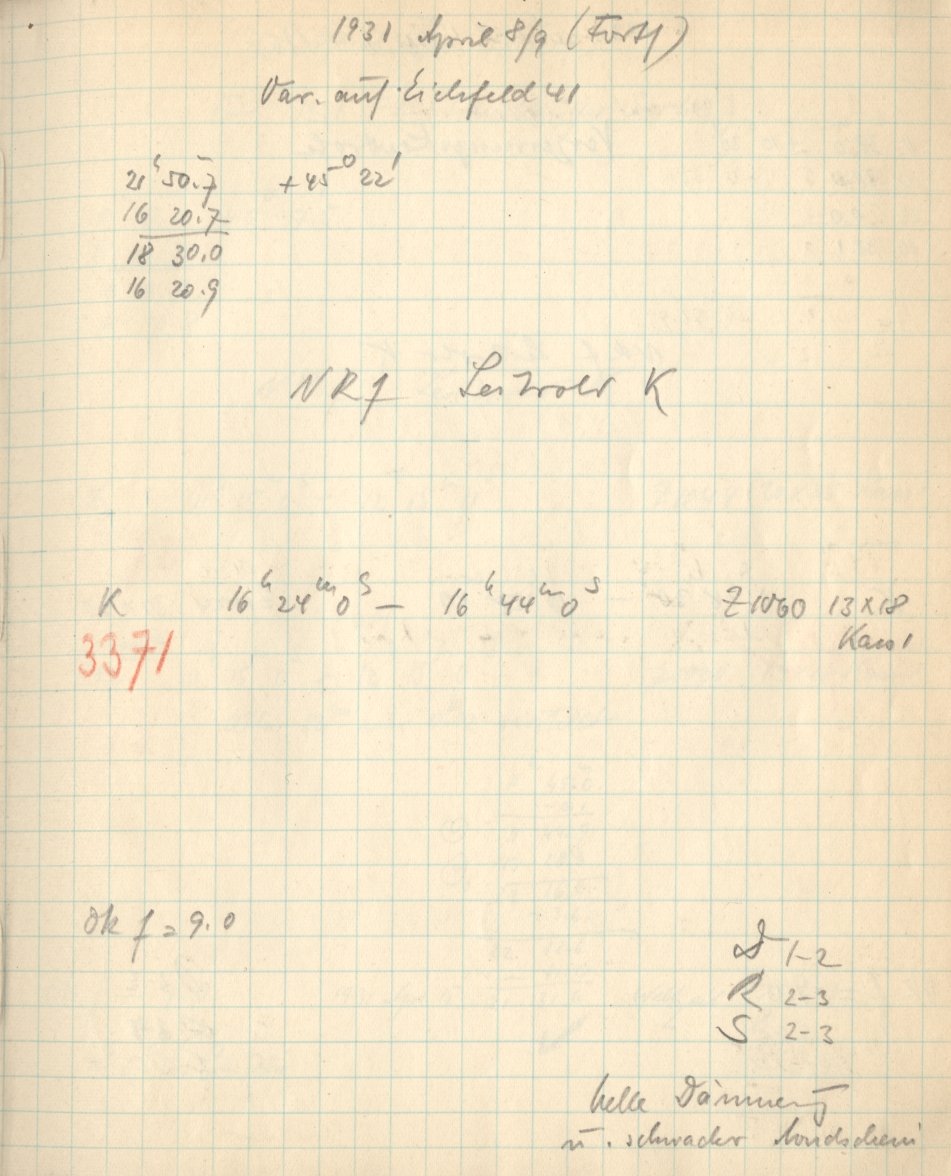 1931 April 8/9 (Fortf)
Var. auf Eichfeld 41
21ʰ 50.ᵐ7 +45° 22'
16 20.7
18 30.0
16 20.9
NRf Leitrohr K
K 16ʰ 24ᵐ 0ˢ — 16ʰ 44ᵐ 0ˢ Z 1060 13×18
3371 Kass 1
Ok f = 9.0
D 1-2
R 2-3
S 2-3
helle Dämmerung
u. schwacher Mondschein